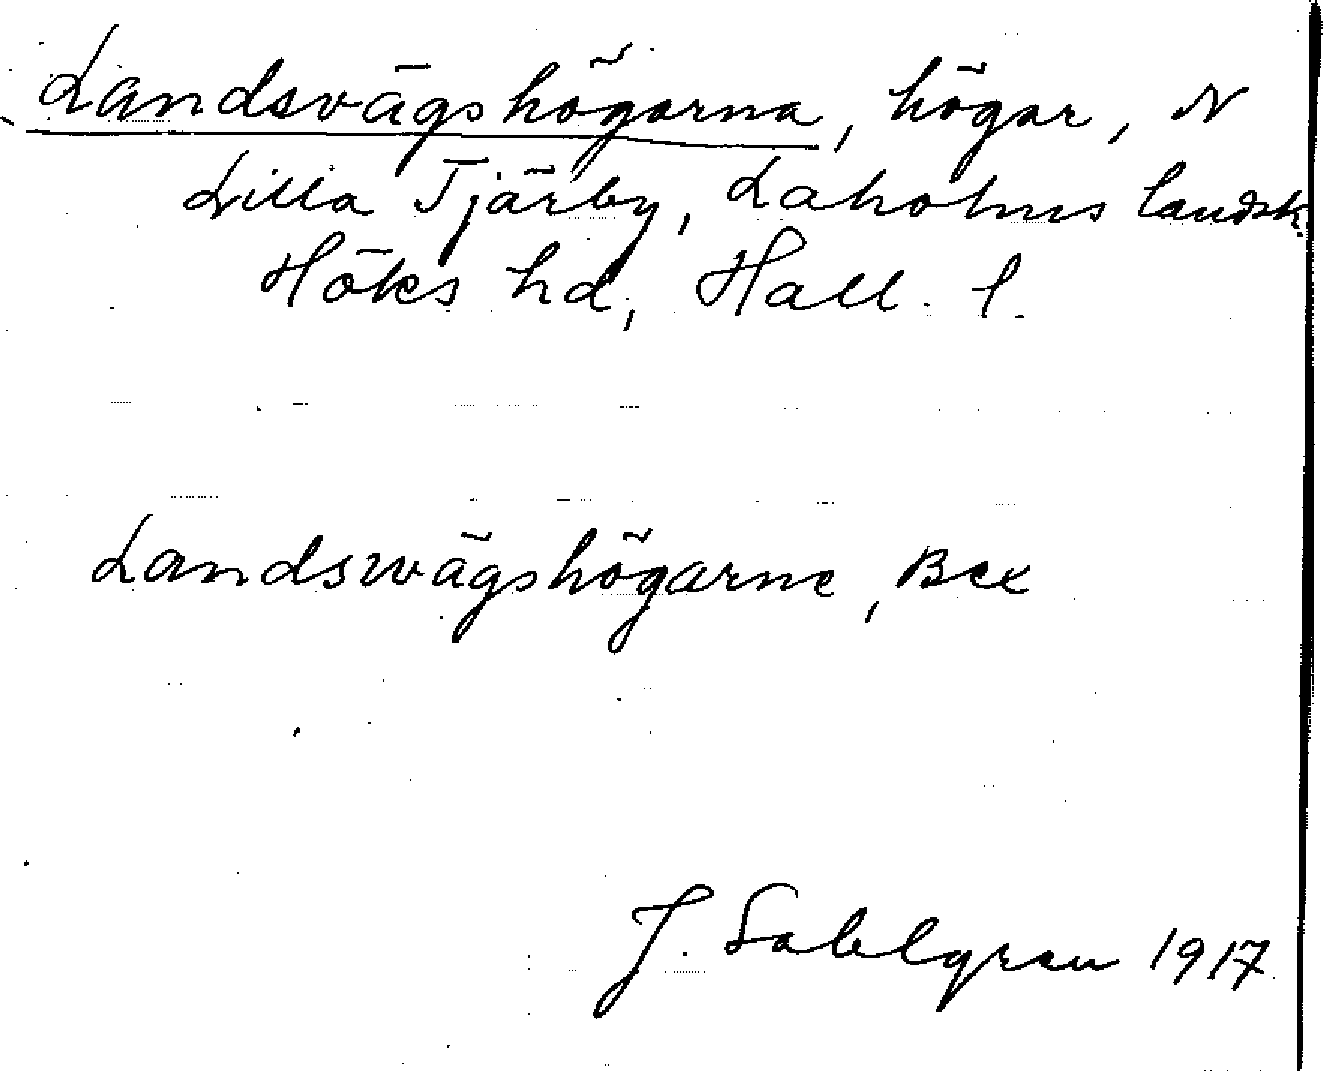 Landsvägshögarna, högar, N
Lilla Tjärby, Laholms landsk.
Höks hd, Hall. l.
Landswägshögarne, Bex
J. Sahlgren 1917